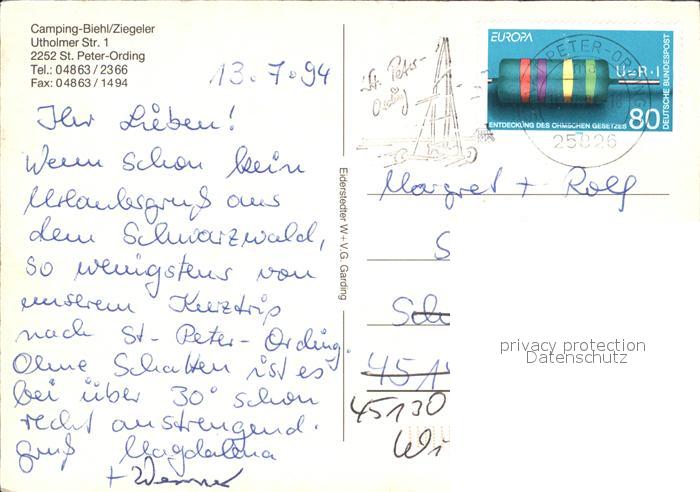 Camping-Biehl/Ziegeler
Utholmer Str. 1
2252 St. Peter-Ording
Tel.: 04863/2366
Fax: 04863/1494
13.7.94
Ihr Lieben!
Wenn schon kein
Urlaubsgruß aus
dem Schwarzwald,
so wenigstens von
unserem Kurztrip
nach St.-Peter-Ording.
Ohne Schatten ist es
bei über 30° schon
recht anstrengend.
Gruß Magdalena
+ Werner
Eiderstedter W+V.G. Garding
St. Peter-
Ording
EUROPA
U=R·I
ENTDECKUNG DES OHMSCHEN GESETZES 80
DEUTSCHE BUNDESPOST
PETER-ORDING
25826
Margret + Rolf
S
Sch
451
45130
privacy protection
Datenschutz